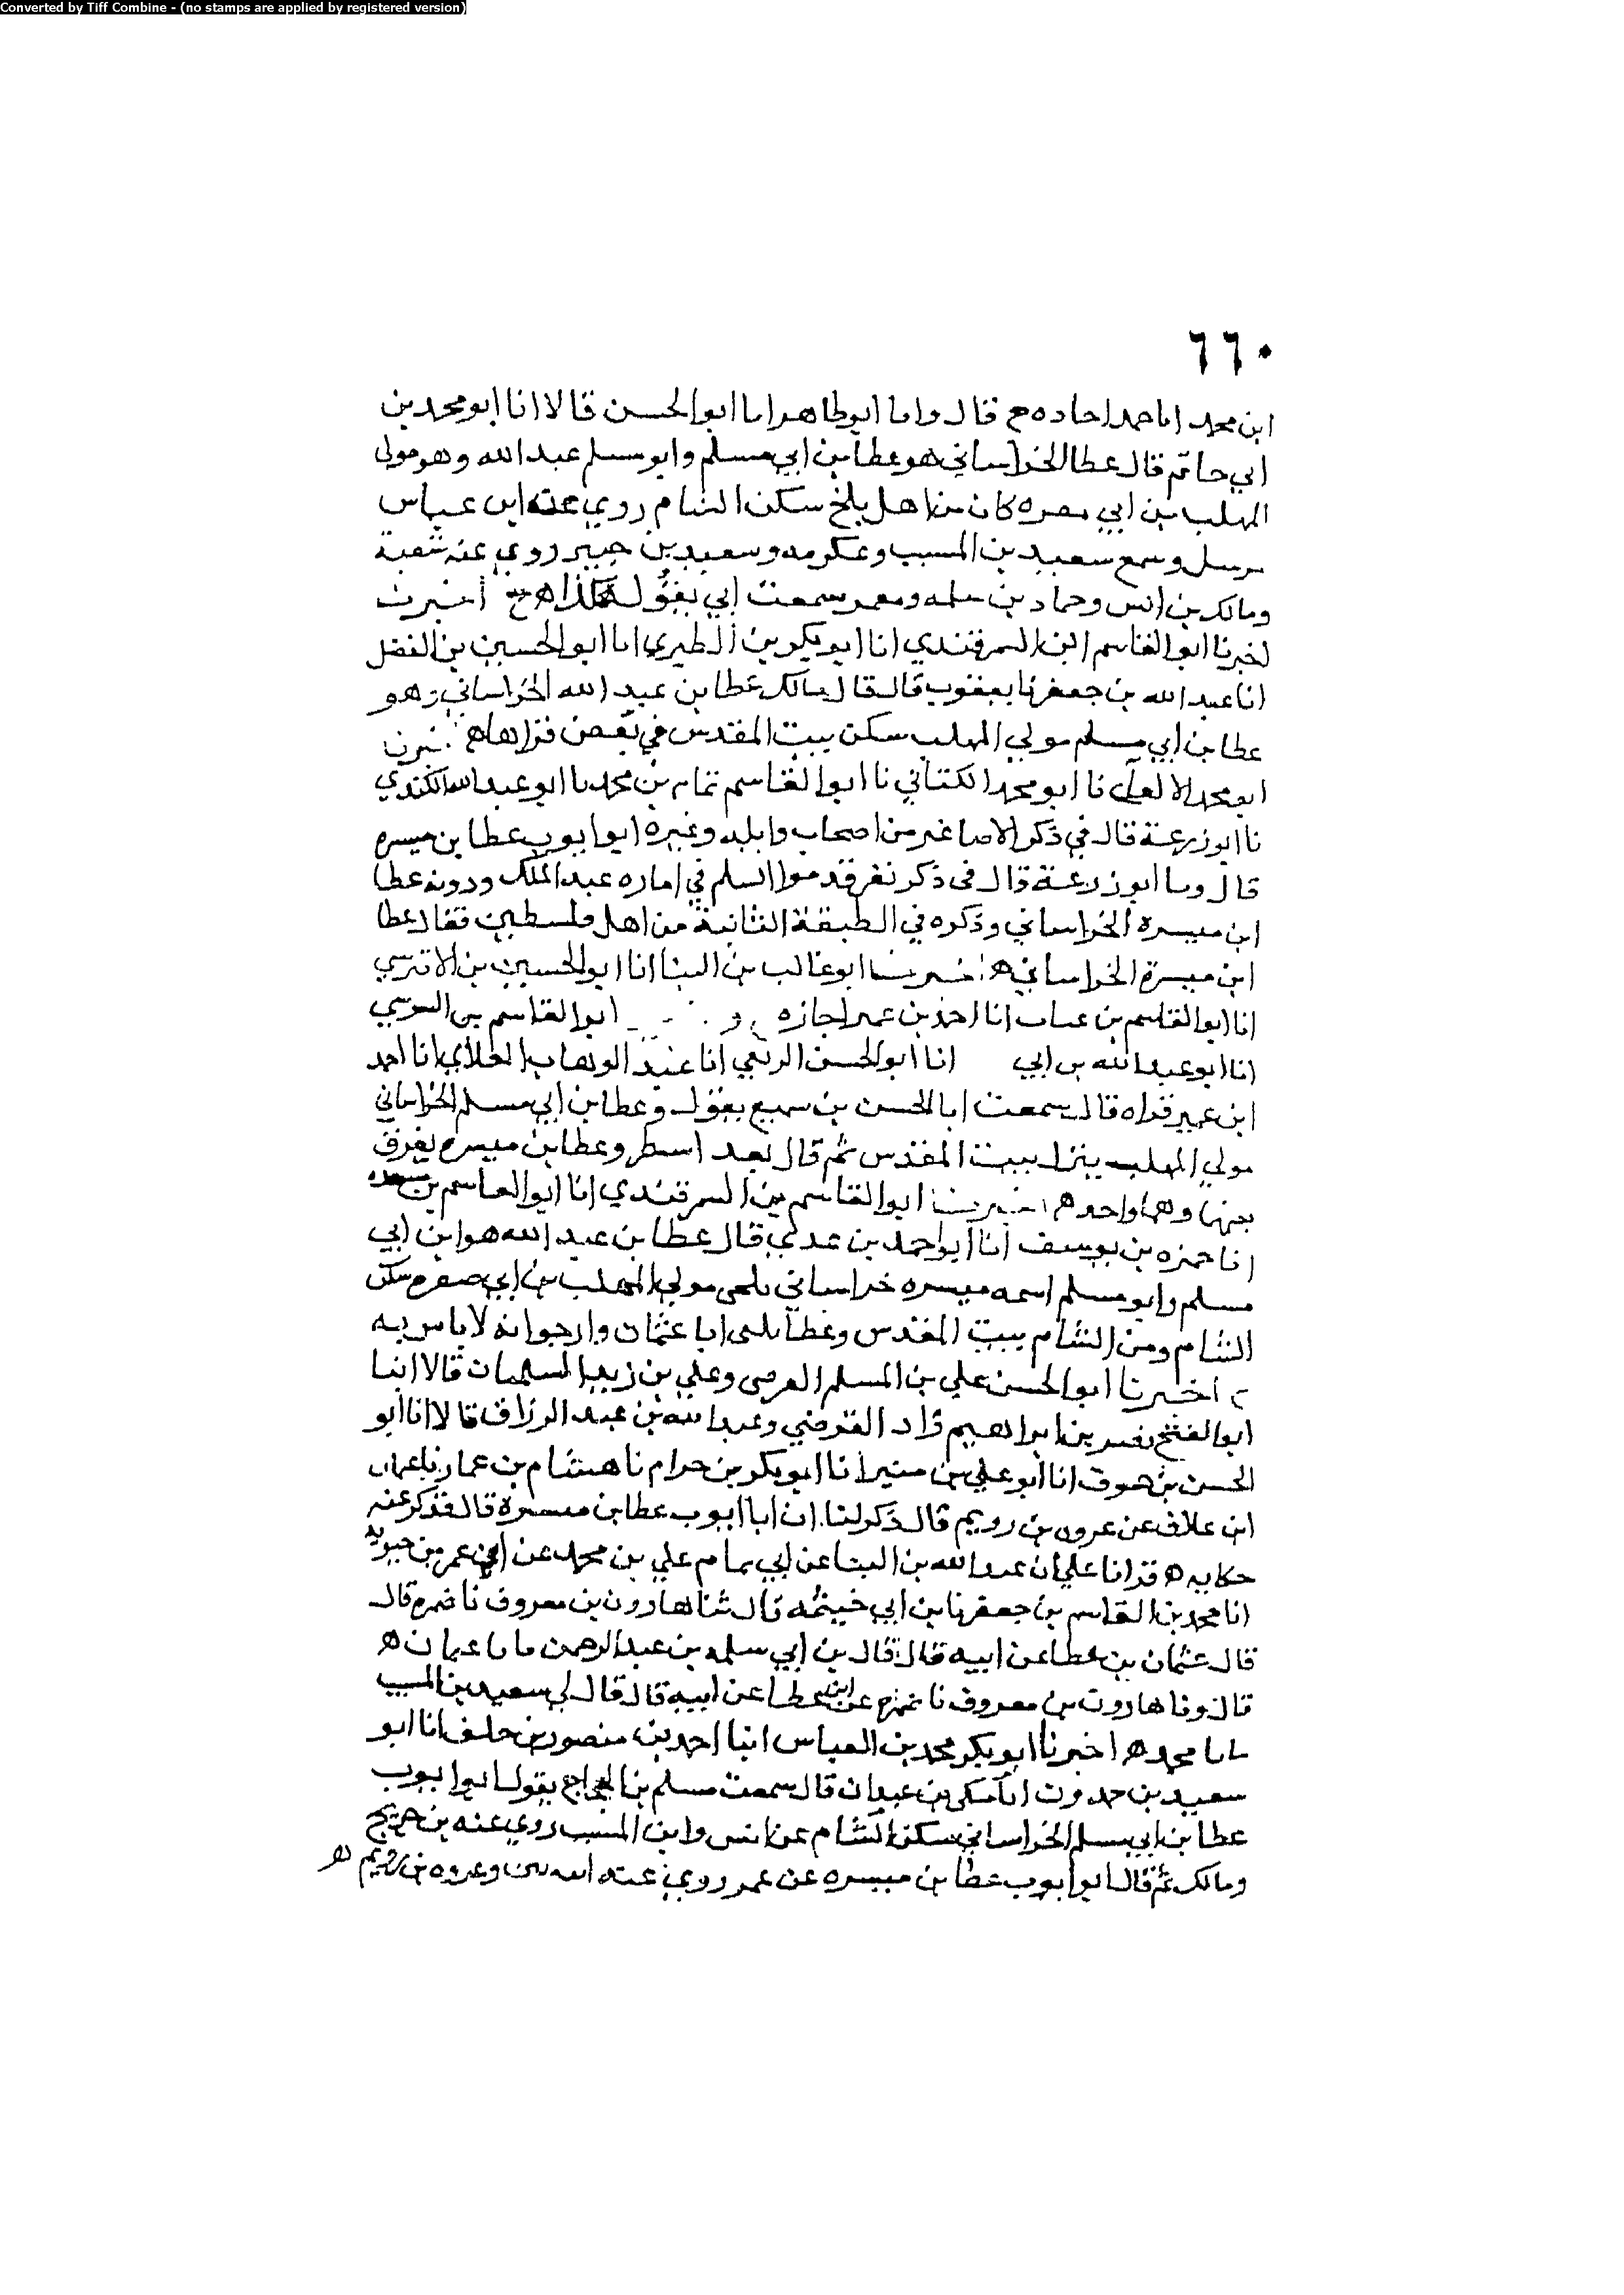 Converted by Tiff Combine - (no stamps are applied by registered version)
٦٦٠
ابن محمد انا حمد اجاده ح قال وانا ابو طاهر انا ابو الحسن قالا انا ابو محمد بن
ابي حاتم قال عطا الخراساني هو عطا بن ابي مسلم وابو مسلم عبد الله وهو مولى
المهلب بن ابي صفره كان من اهل بلخ سكن الشام روي عنه ابن عباس
مرسل وسمع سعيد بن المسيب وعكرمه وسعيد بن جبير روي عنه شعبة
ومالك بن انس وحماد بن سلمه ومعمر سمعت ابي يقول هكذا ه اخبرنا
اخبرنا ابو القاسم ابن السمرقندي انا ابو بكر بن الطبري انا ابو الحسين بن الفضل
انا عبد الله بن جعفر نا يعقوب قال قال مالك عطا بن عبد الله الخراساني وهو
عطا بن ابي مسلم مولي المهلب سكن بيت المقدس في بعض قراها ه
ابو محمد نا ابو محمد الكتاني نا ابو القاسم تمام بن محمد نا ابو عبد الله الكندي
نا ابو زرعة قال في ذكر الاصاغر من اصحاب واثله وغيره ابو ايوب عطا بن ميسره
قال ونا ابو زرعة قال في ذكر نفر قدموا الشام في اماره عبد الملك ودونه عطا
ابن ميسرة الخراساني وذكره في الطبقة الثانية من اهل فلسطين فقال عطا
ابن ميسرة الخراساني ه اخبرنا ابو غالب بن البنا انا ابو الحسين بن الابنوسي
انا ابو القاسم بن عتاب انا احمد بن عمير اجازه ابو القاسم بن السوسي
انا ابو عبد الله بن ابي انا ابو الحسن الربعي انا عبد الوهاب الكلابي انا احمد
ابن عمير قراه قال سمعت ابا الحسن بن سميع يقول وعطا بن ابي مسلم الخراساني
مولي المهلب ينزل بيت المقدس ثم قال بعد اسطر وعطا بن ميسره يفرق
بينهما وهما واحد ه اخبرنا ابو القاسم بن السمرقندي انا ابو القاسم بن مسعده
انا حمزه بن يوسف انا ابو احمد بن عدي قال عطا بن عبد الله هو ابن ابي
مسلم وابو مسلم اسمه ميسره خراساني بلخي مولي المهلب بن ابي صفره سكن
الشام ومن الشام بيت المقدس وعطا يكنى ابا عثمان وارجوا انه لا باس به
اخبرنا ابو الحسن علي بن المسلم الفرضي وعلي بن زيد السلميان قالا انبا
ابو الفتح نصر بن ابراهيم زاد الفرضي وعبد الله بن عبد الرزاق قالا انا ابو
الحسن بن عوف انا ابو علي بن منير انا ابو بكر بن خرام نا هشام بن عمار نا عثمان
ابن علاق عن عروه بن رويم قال ذكر لنا ان ابا ايوب عطا بن ميسرة قال فذكر عنه
حكايه ه قرانا علي ابن عبد الله بن البنا عن ابي تمام علي بن محمد عن ابي عمر بن حيويه
انا محمد بن القاسم بن جعفر نا بن ابي خيثمه قال ثنا هارون بن معروف نا ضمره قال
قال عثمان بن عطا عن ابيه قال قال بن ابي سلمه بن عبد الرحمن ما با عثمان ه
قال ونا هارون بن معروف نا ضمره عن ابن عطا عن ابيه قال قال لي سعيد بن المسيب
يا با محمد ه اخبرنا ابو بكر محمد بن العباس انبا احمد بن منصور بن خلف انا ابو
سعيد بن حمدون انا مكي بن عبدان قال سمعت مسلم بن الحجاج يقول ابو ايوب
عطا بن ابي مسلم الخراساني سكن الشام عن انس وابن المسيب روي عنه بن جريج
ومالك ثم قال ابو ايوب عطا بن ميسره عن عمر روي عنه وعروه بن رويم ه